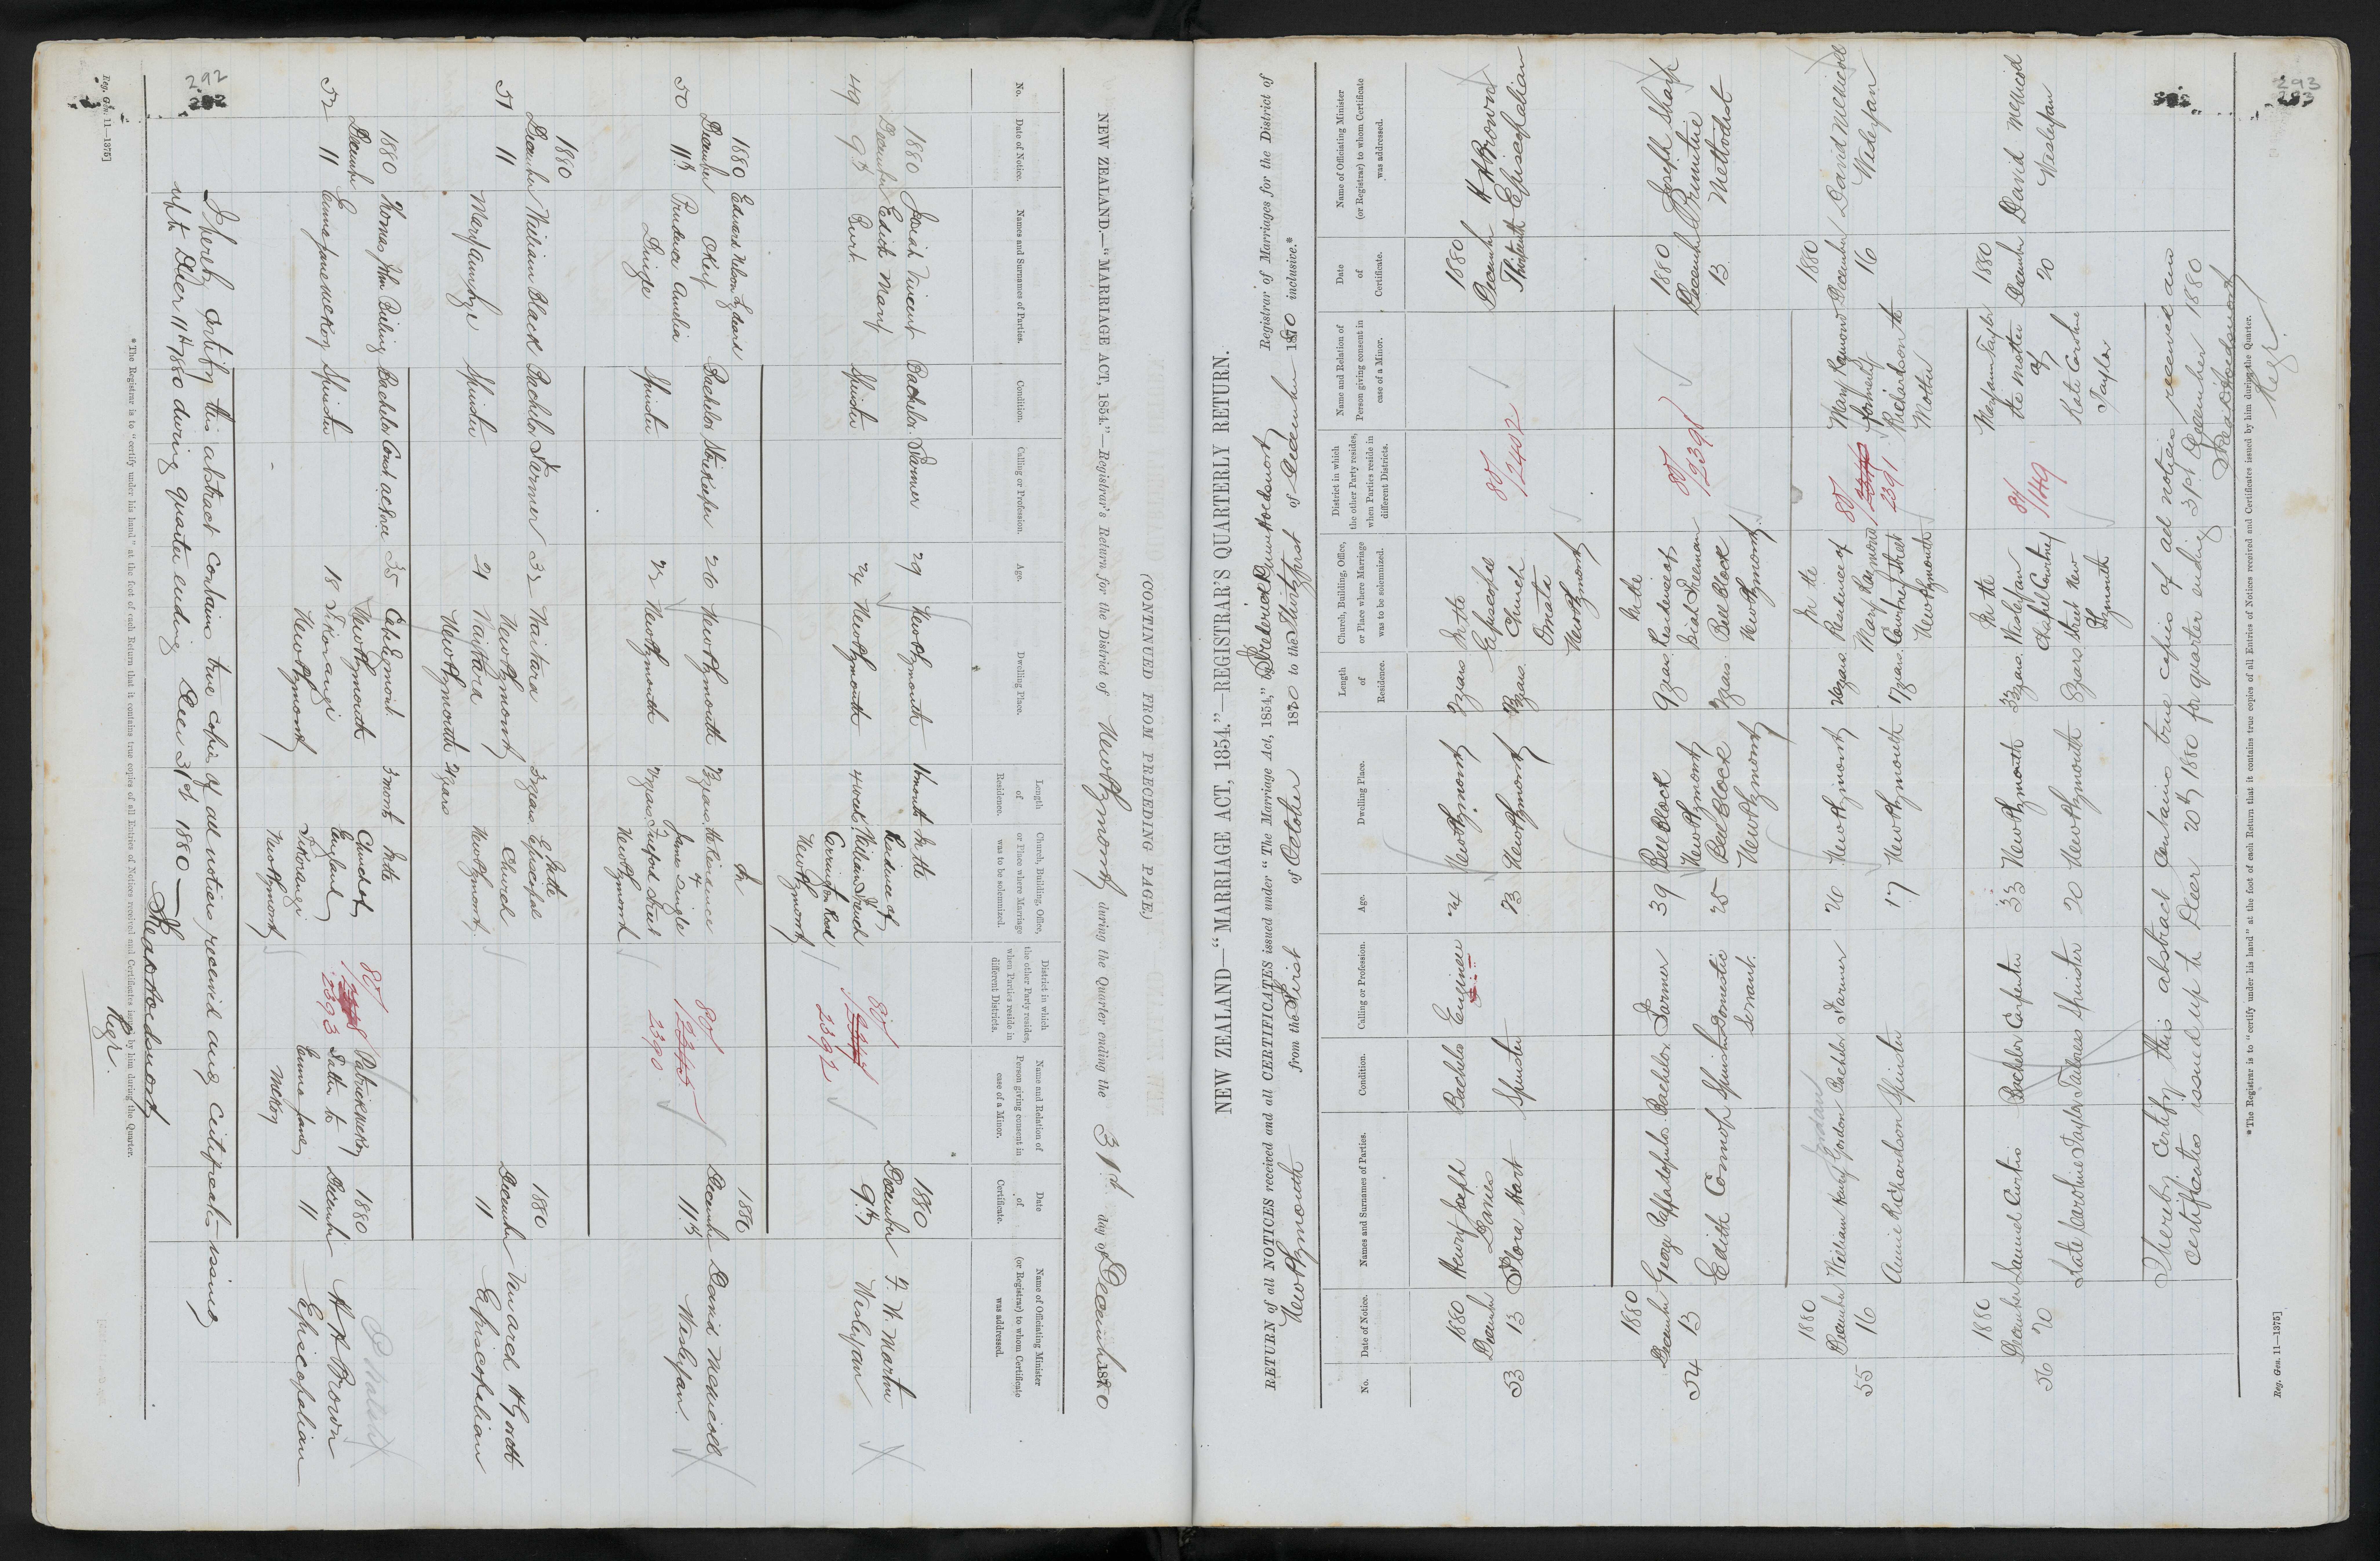 (CONTINUED FROM PRECEDING PAGE.)
NEW ZEALAND.—"MARRIAGE ACT, 1854."—Registrar's Return for the District of New Plymouth during the Quarter ending the 31st day of December 1880
No.
Date of Notice.
Names and Surnames of Parties.
Condition.
Calling or Profession.
Age.
Dwelling Place.
Length of Residence.
Church, Building, Office, or Place where Marriage was to be solemnized.
District in which the other Party resides, when Parties reside in different Districts.
Name and Relation of Person giving consent in case of a Minor.
Date of Certificate.
Name of Officiating Minister (or Registrar) to whom Certificate was addressed.
1880 Josiah Vincent Bachelor Farmer 29 New Plymouth 11 months In the 1880
December Edith Mary Spinster 24 New Plymouth 4 weeks Residence of December F. W. Martin
49 9th William French 80/ 9th Wesleyan
Carrington Road 2392
New Plymouth
1880 Edward Nelson In 1880
December Okey Bachelor Storekeeper 26 New Plymouth the Residence December David McNicoll
50 11th Prudence Amelia Spinster 22 New Plymouth of 80/ 11th Wesleyan
James Tuxford Street 2390
New Plymouth
1880 In the 1880
December William Black Bachelor Farmer 32 Waitara 3 years Episcopal December
51 11 New Plymouth Church 11 Episcopalian
Spinster 21 Waitara New Plymouth
New Plymouth 21 years
1880 Thomas John Bachelor 35 Cape Egmont 3 months In the Patrick McKoy 1880
December New Plymouth Church of 80/ Father to December H H Brown
52 11 Emma Jane McKoy Spinster 18 Tikorangi England 2393 Emma Jane 11 Episcopalian
New Plymouth Tikorangi McKoy
New Plymouth
I hereby certify this abstract contains true copies of all notices received and certificates issued
up to Decr 11th 1880 during quarter ending Decr 31st 1880—
Regr.
* The Registrar is to "certify under his hand" at the foot of each Return that it contains true copies of all Entries of Notices received and Certificates issued by him during the Quarter.
Reg. Gen. 11—1375]
292
NEW ZEALAND—"MARRIAGE ACT, 1854."—REGISTRAR'S QUARTERLY RETURN.
RETURN of all NOTICES received and all CERTIFICATES issued under "The Marriage Act, 1854," by Registrar of Marriages for the District of
New Plymouth from the First of October 1880 to the Thirty first of December 1880 inclusive.*
No.
Date of Notice.
Names and Surnames of Parties.
Condition.
Calling or Profession.
Age.
Dwelling Place.
Length of Residence.
Church, Building, Office, or Place where Marriage was to be solemnized.
District in which the other Party resides, when Parties reside in different Districts.
Name and Relation of Person giving consent in case of a Minor.
Date of Certificate.
Name of Officiating Minister (or Registrar) to whom Certificate was addressed.
1880 Henry Joseph Bachelor Engineer 24 New Plymouth 2 years In the 80/ 1880 H H Brown
December Davies Episcopal 2402 December Episcopalian
53 13 Flora Hart Spinster 23 New Plymouth Church Thirteenth
Omata
New Plymouth
1880 In the 1880 Joseph Sharp
December George Pappadopulos Bachelor Farmer 39 Bell Block 9 years Residence of 80/ December Primitive
54 13 New Plymouth Freeman 2398 13 Methodist
Edith Connop Spinster Domestic 25 Bell Block Bell Block
Servant. New Plymouth New Plymouth
1880 In the 80/ Mary Raymond 1880 David McNicoll
December William Henry Gordon Bachelor Farmer 26 New Plymouth 26 years Residence of formerly December Wesleyan
55 16 Mary Raymond 2391 Richardson the 16
Annie Richardson Spinster 17 New Plymouth 17 years Courtney Street Mother
New Plymouth
1880 In the Mary Ann Taylor 1880
December Samuel Curtis Bachelor Carpenter 33 New Plymouth 33 years Wesleyan 81/ the mother December David McNicoll
56 20 Chapel Courtney 149 of 20 Wesleyan
Kate Caroline Taylor Spinster 20 New Plymouth 8 years Street New Kate Caroline
Plymouth Taylor
I hereby certify this abstract contains true copies of all notices received and
certificates issued up to Decr 20th 1880 for quarter ending 31st December 1880
Regr.
* The Registrar is to "certify under his hand" at the foot of each Return that it contains true copies of all Entries of Notices received and Certificates issued by him during the Quarter.
Reg. Gen. 11—1375]
293